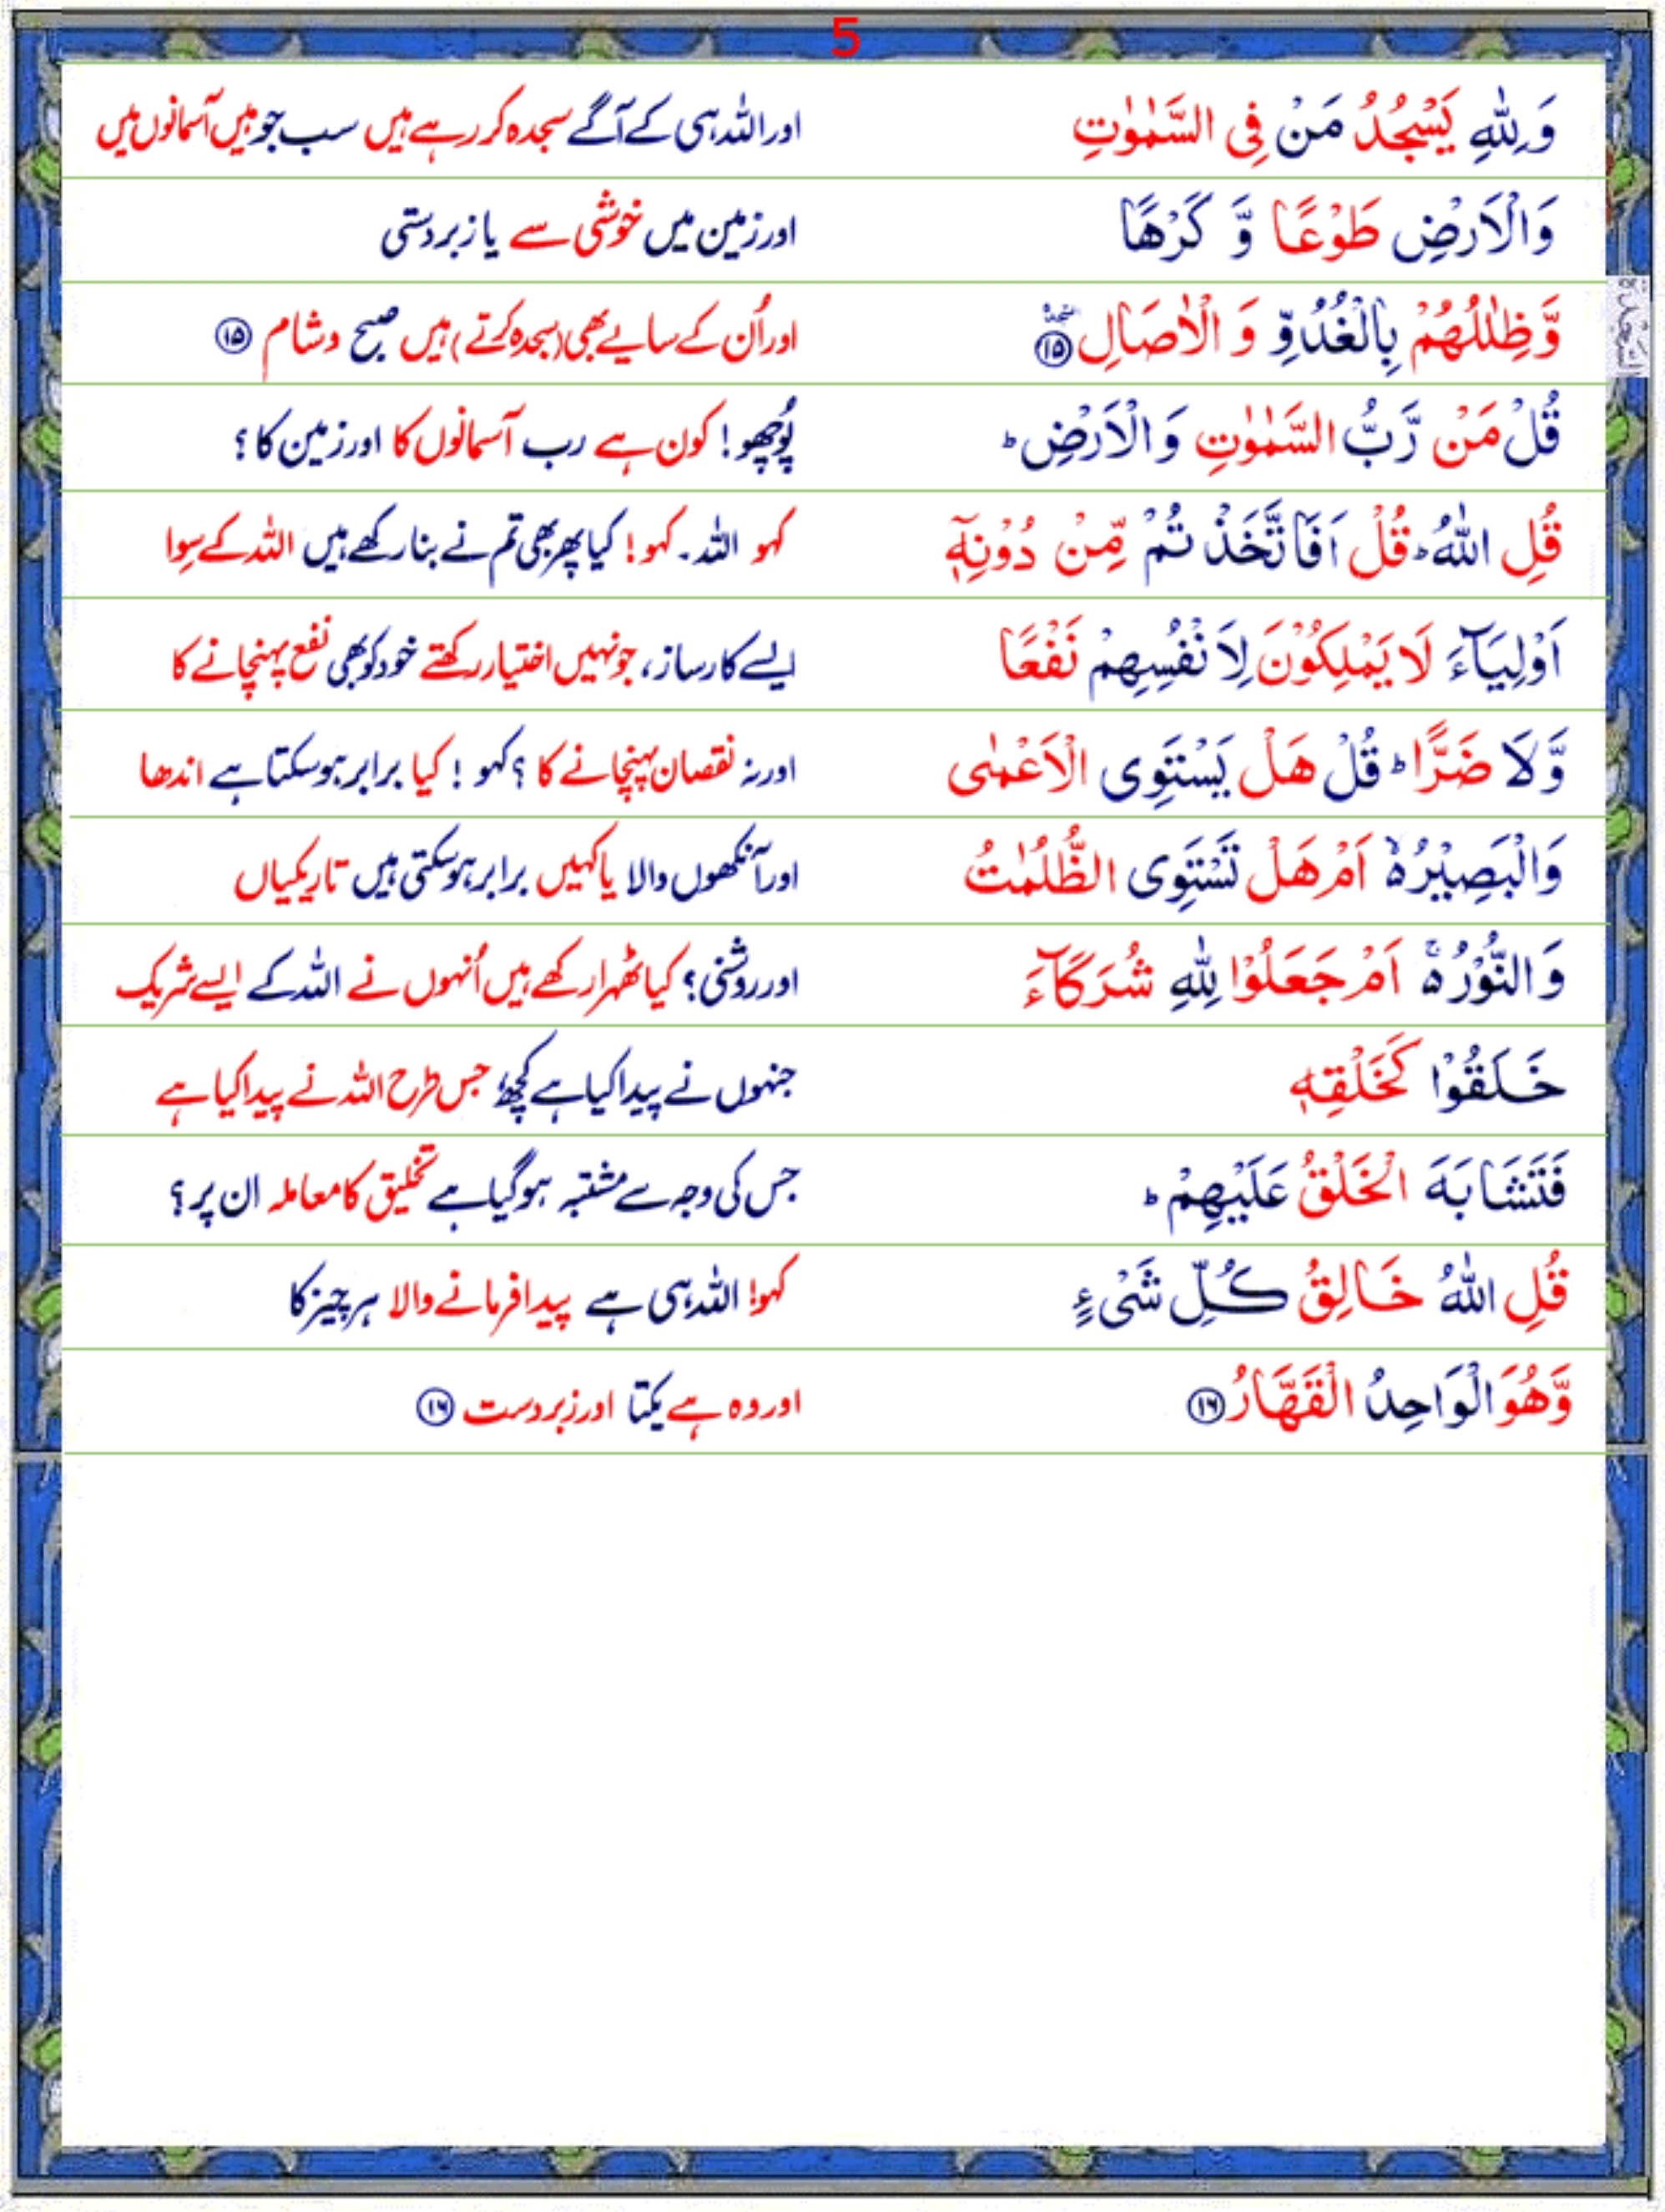 5
وَلِلّٰهِ يَسْجُدُ مَنْ فِى السَّمٰوٰتِ اور اللہ ہی کے آگے سجدہ کر رہے ہیں سب جو ہیں آسمانوں میں
وَالْاَرْضِ طَوْعًا وَّ كَرْهًا اور زمین میں خوشی سے یا زبردستی
وَّظِلٰلُهُمْ بِالْغُدُوِّ وَ الْاٰصَالِ ۩ ⑮ اور اُن کے سایے بھی (سجدہ کرتے) ہیں صبح و شام ⑮
السجدة
قُلْ مَنْ رَّبُّ السَّمٰوٰتِ وَالْاَرْضِ ؕ پُوچھو! کون ہے رب آسمانوں کا اور زمین کا؟
قُلِ اللّٰهُ ؕ قُلْ اَفَاتَّخَذْتُمْ مِّنْ دُوْنِهٖۤ کہو اللہ۔ کہو! کیا پھر بھی تم نے بنا رکھے ہیں اللہ کے سِوا
اَوْلِيَآءَ لَا يَمْلِكُوْنَ لِاَنْفُسِهِمْ نَفْعًا ایسے کارساز، جو نہیں اختیار رکھتے خود کو بھی نفع پہنچانے کا
وَّلَا ضَرًّا ؕ قُلْ هَلْ يَسْتَوِى الْاَعْمٰى اور نہ نقصان پہنچانے کا ؟ کہو ! کیا برابر ہو سکتا ہے اندھا
وَالْبَصِيْرُ ۙ اَمْ هَلْ تَسْتَوِى الظُّلُمٰتُ اور آنکھوں والا یا کہیں برابر ہو سکتی ہیں تاریکیاں
وَالنُّوْرُ ۚ اَمْ جَعَلُوْا لِلّٰهِ شُرَكَآءَ اور روشنی؟ کیا ٹھہرا رکھے ہیں اُنہوں نے اللہ کے ایسے شریک
خَلَقُوْا كَخَلْقِهٖ جنہوں نے پیدا کیا ہے کچھ جس طرح اللہ نے پیدا کیا ہے
فَتَشَابَهَ الْخَلْقُ عَلَيْهِمْ ؕ جس کی وجہ سے مشتبہ ہو گیا ہے تخلیق کا معاملہ ان پر؟
قُلِ اللّٰهُ خَالِقُ كُلِّ شَىْءٍ کہو! اللہ ہی ہے پیدا فرمانے والا ہر چیز کا
وَّهُوَ الْوَاحِدُ الْقَهَّارُ ⑯ اور وہ ہے یکتا اور زبردست ⑯